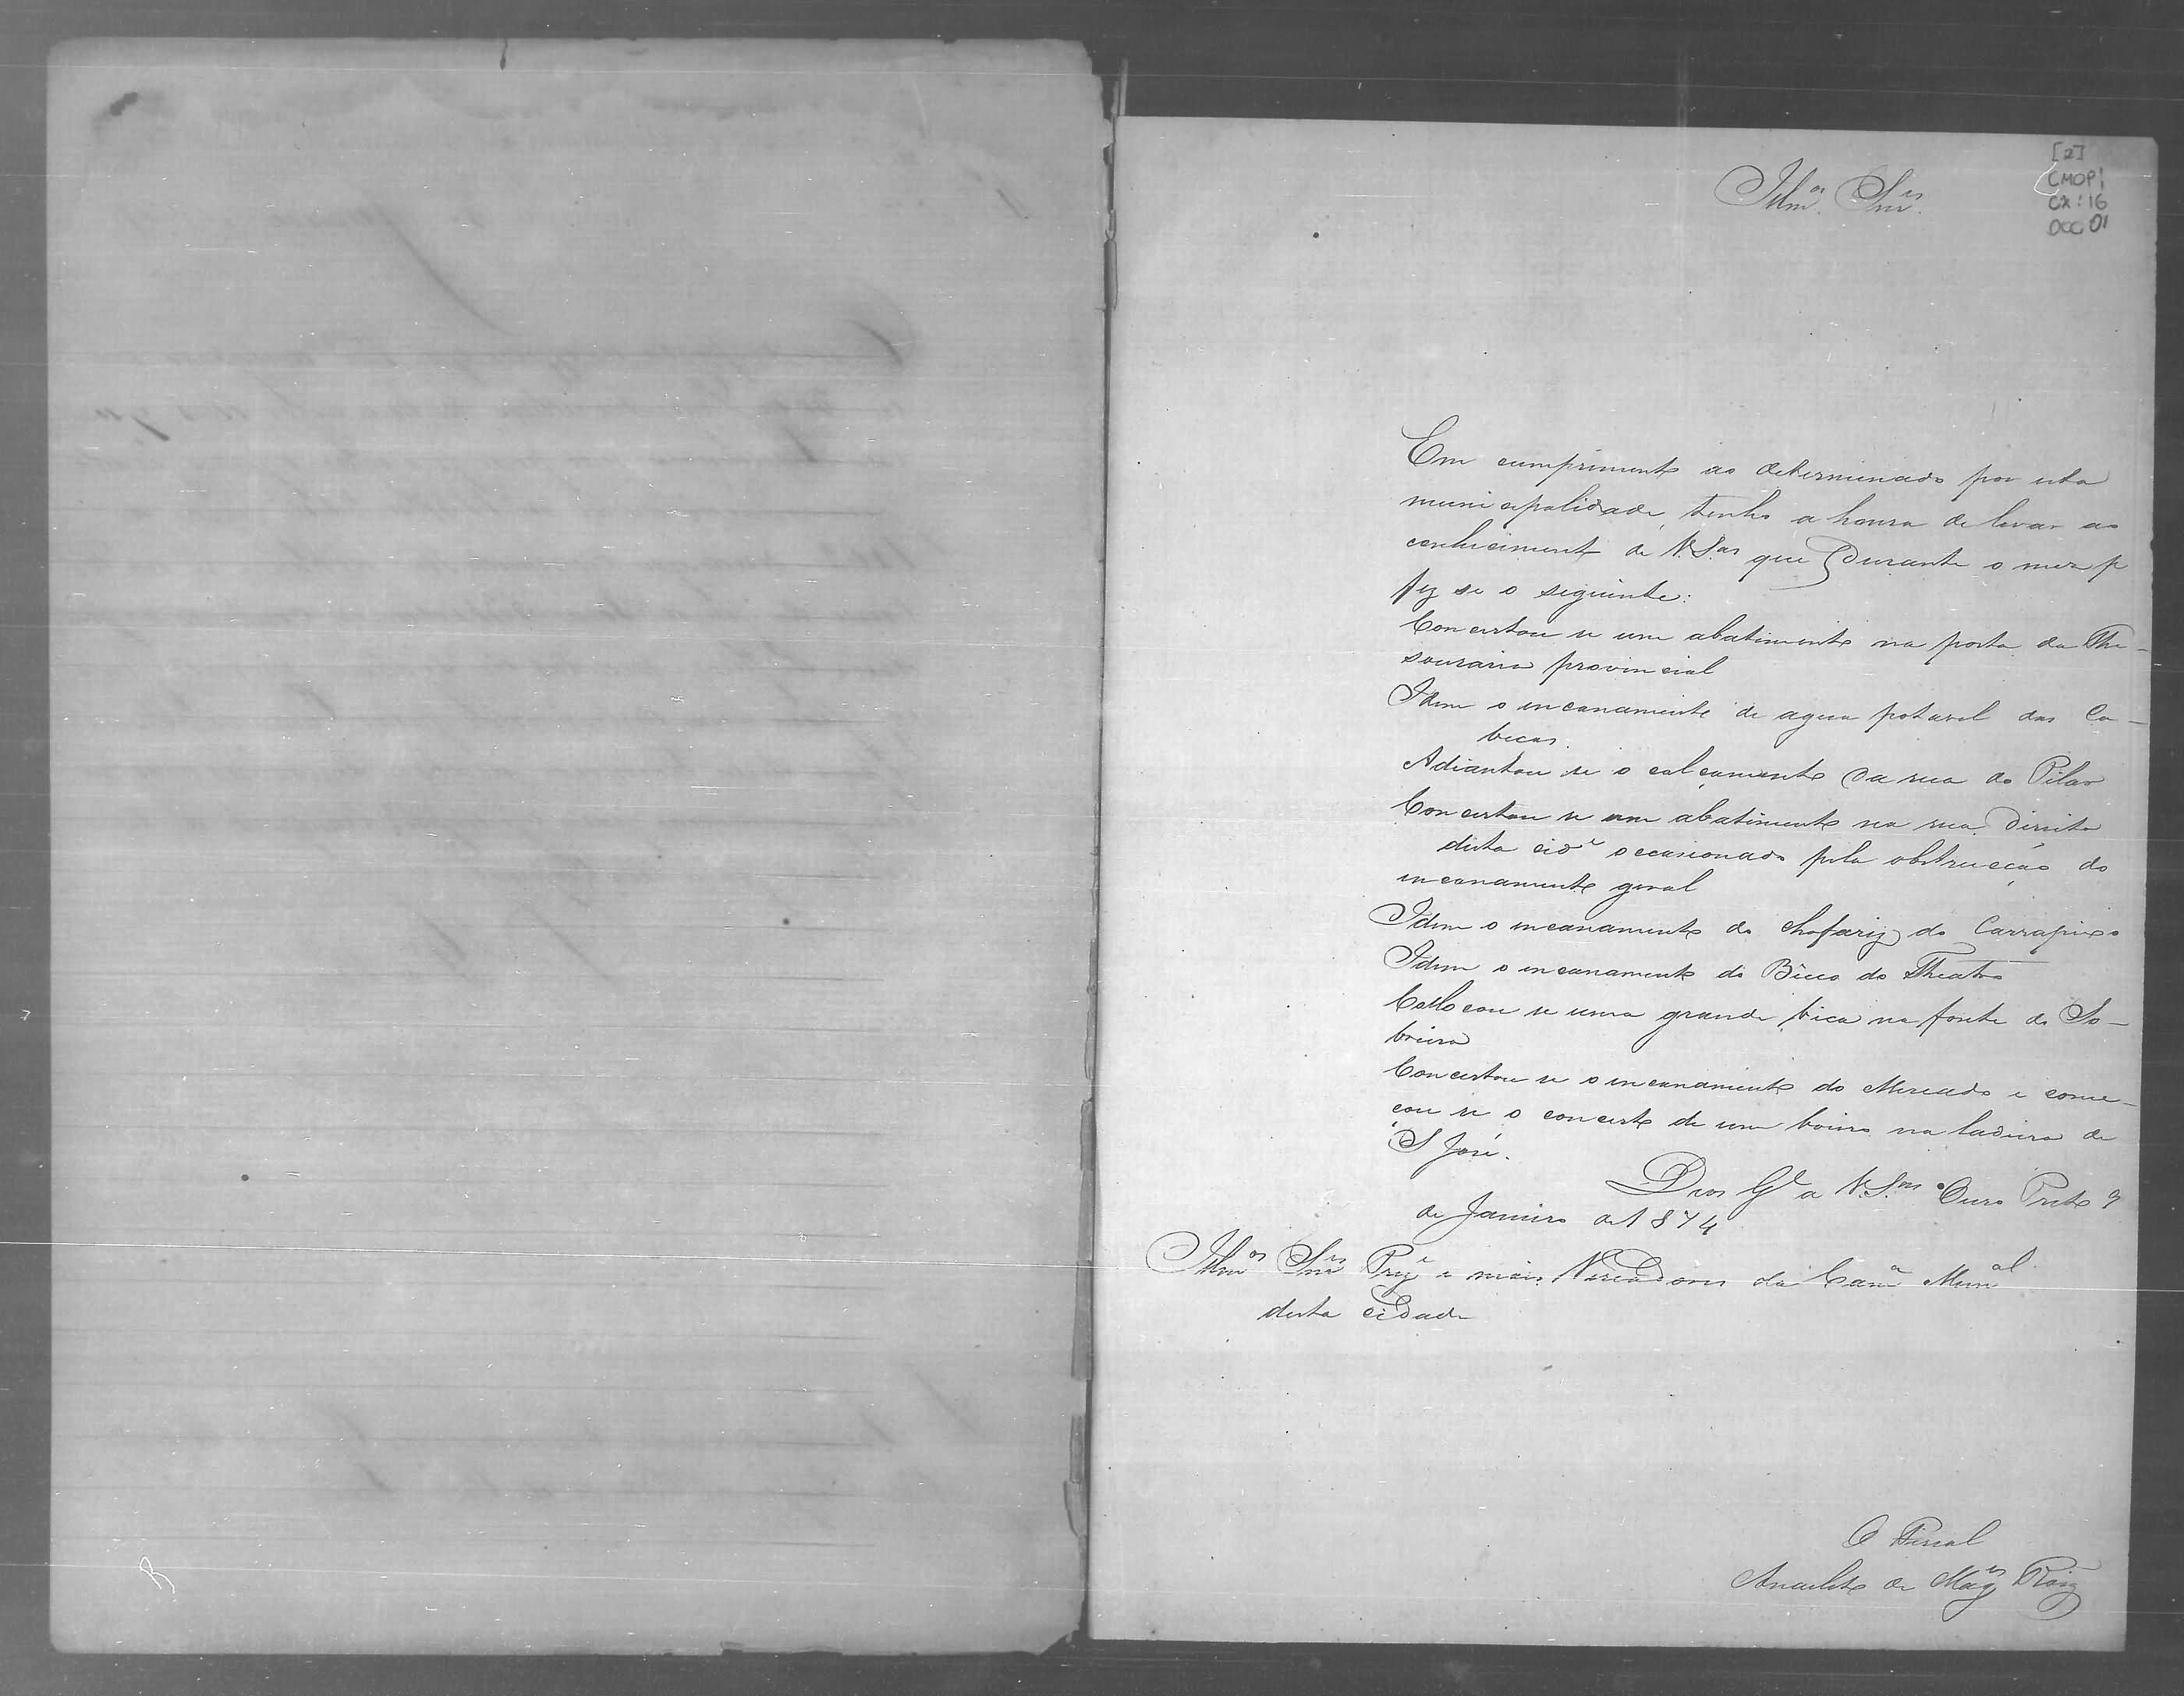 [2]
CMOP
CX: 16
DOC 01
Illm.os Snr.es
Em cumprimento ao determinado por esta
municipalidade, tenho a honra de levar ao
conhecimento de V. S.as que durante o mez p
fez se o seguinte:
Concertou se um abatimento na porta da The-
souraria provincial
Idem o incanamento de agua potavel das Ca-
beças.
Adiantou se o calçamento da rua do Pilar
Concertou se um abatimento na rua Direita
desta cid.e occasionado pela obstrucção do
incanamento geral
Idem o incanamento do chafariz do Carrapixo
Idem o incanamento do Bêco do Theatro
Collocou se uma grande bica na fonte do So-
breira
Concertou se o incanamento do Mercado e come-
çou se o concerto de um boeiro na ladeira de
S José.
Deos G.e a V. S.as Ouro Preto 9
de Janeiro de 1874
Illm.os Snr.es Prez.e e mais Vereadores da Cam.a Mun.al
desta cidade
O Fiscal
Anacleto de Mag.es Roiz